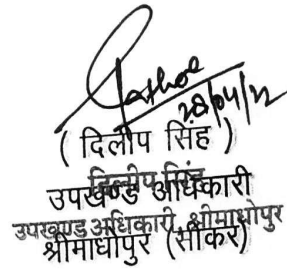 28/04/22
( दिलीप सिंह )
दिलीप सिंह
उपखण्ड अधिकारी
उपखण्ड अधिकारी, श्रीमाधोपुर
श्रीमाधोपुर (सीकर)